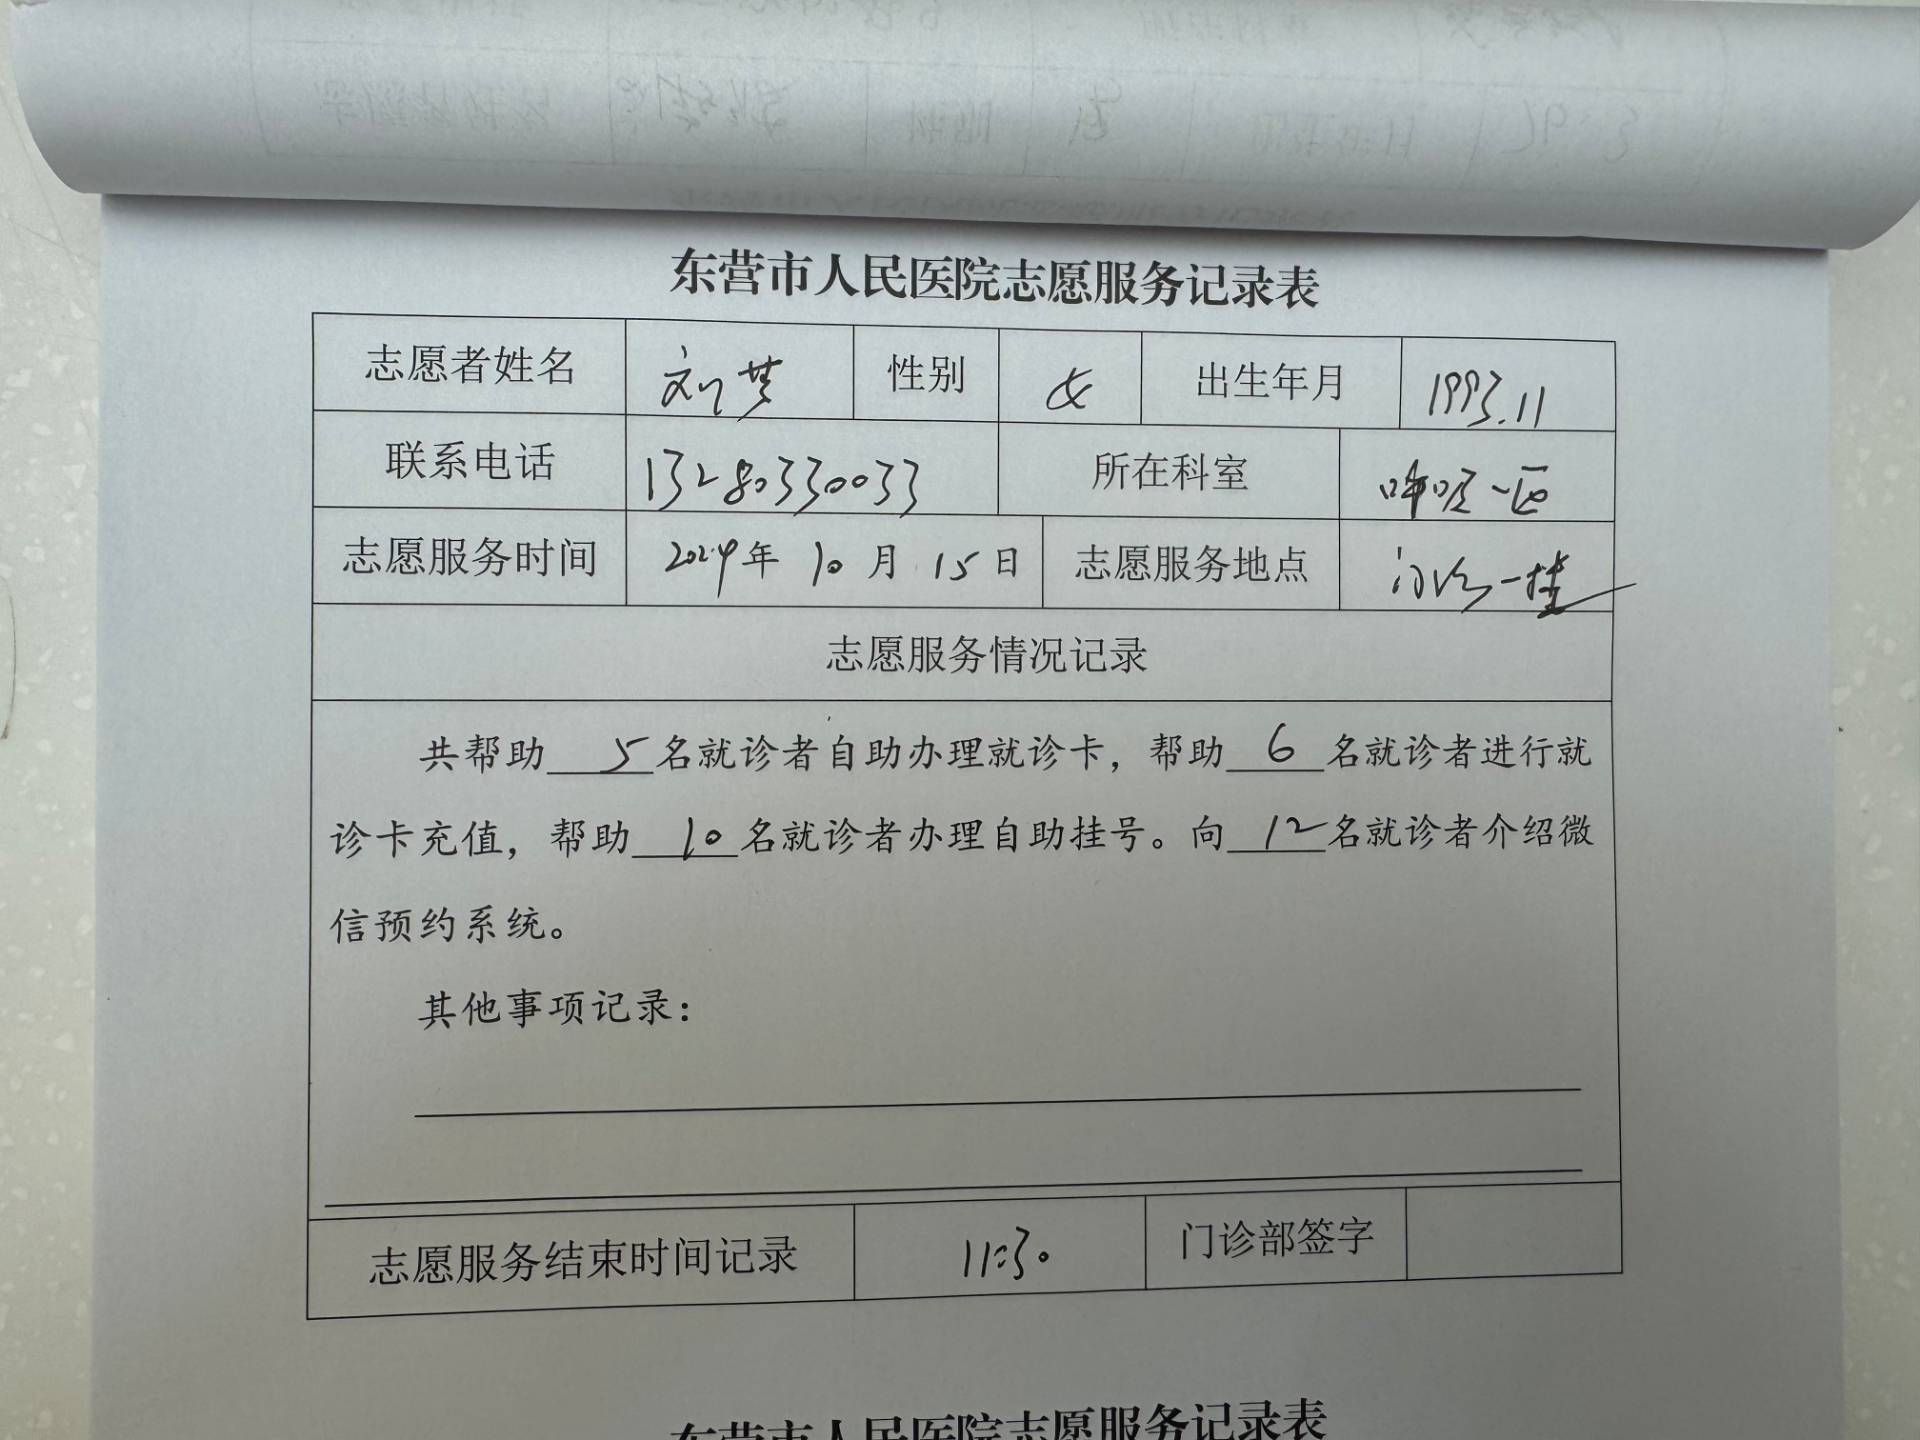 东营市人民医院志愿服务记录表
志愿者姓名 刘梦 性别 女 出生年月 1993.11
联系电话 13280330033 所在科室 呼吸一区
志愿服务时间 2024年 10月 15日 志愿服务地点 门诊一楼
志愿服务情况记录
共帮助 5 名就诊者自助办理就诊卡，帮助 6 名就诊者进行就
诊卡充值，帮助 10 名就诊者办理自助挂号。向 12 名就诊者介绍微
信预约系统。
其他事项记录：
志愿服务结束时间记录 11:30 门诊部签字
东营市人民医院志愿服务记录表